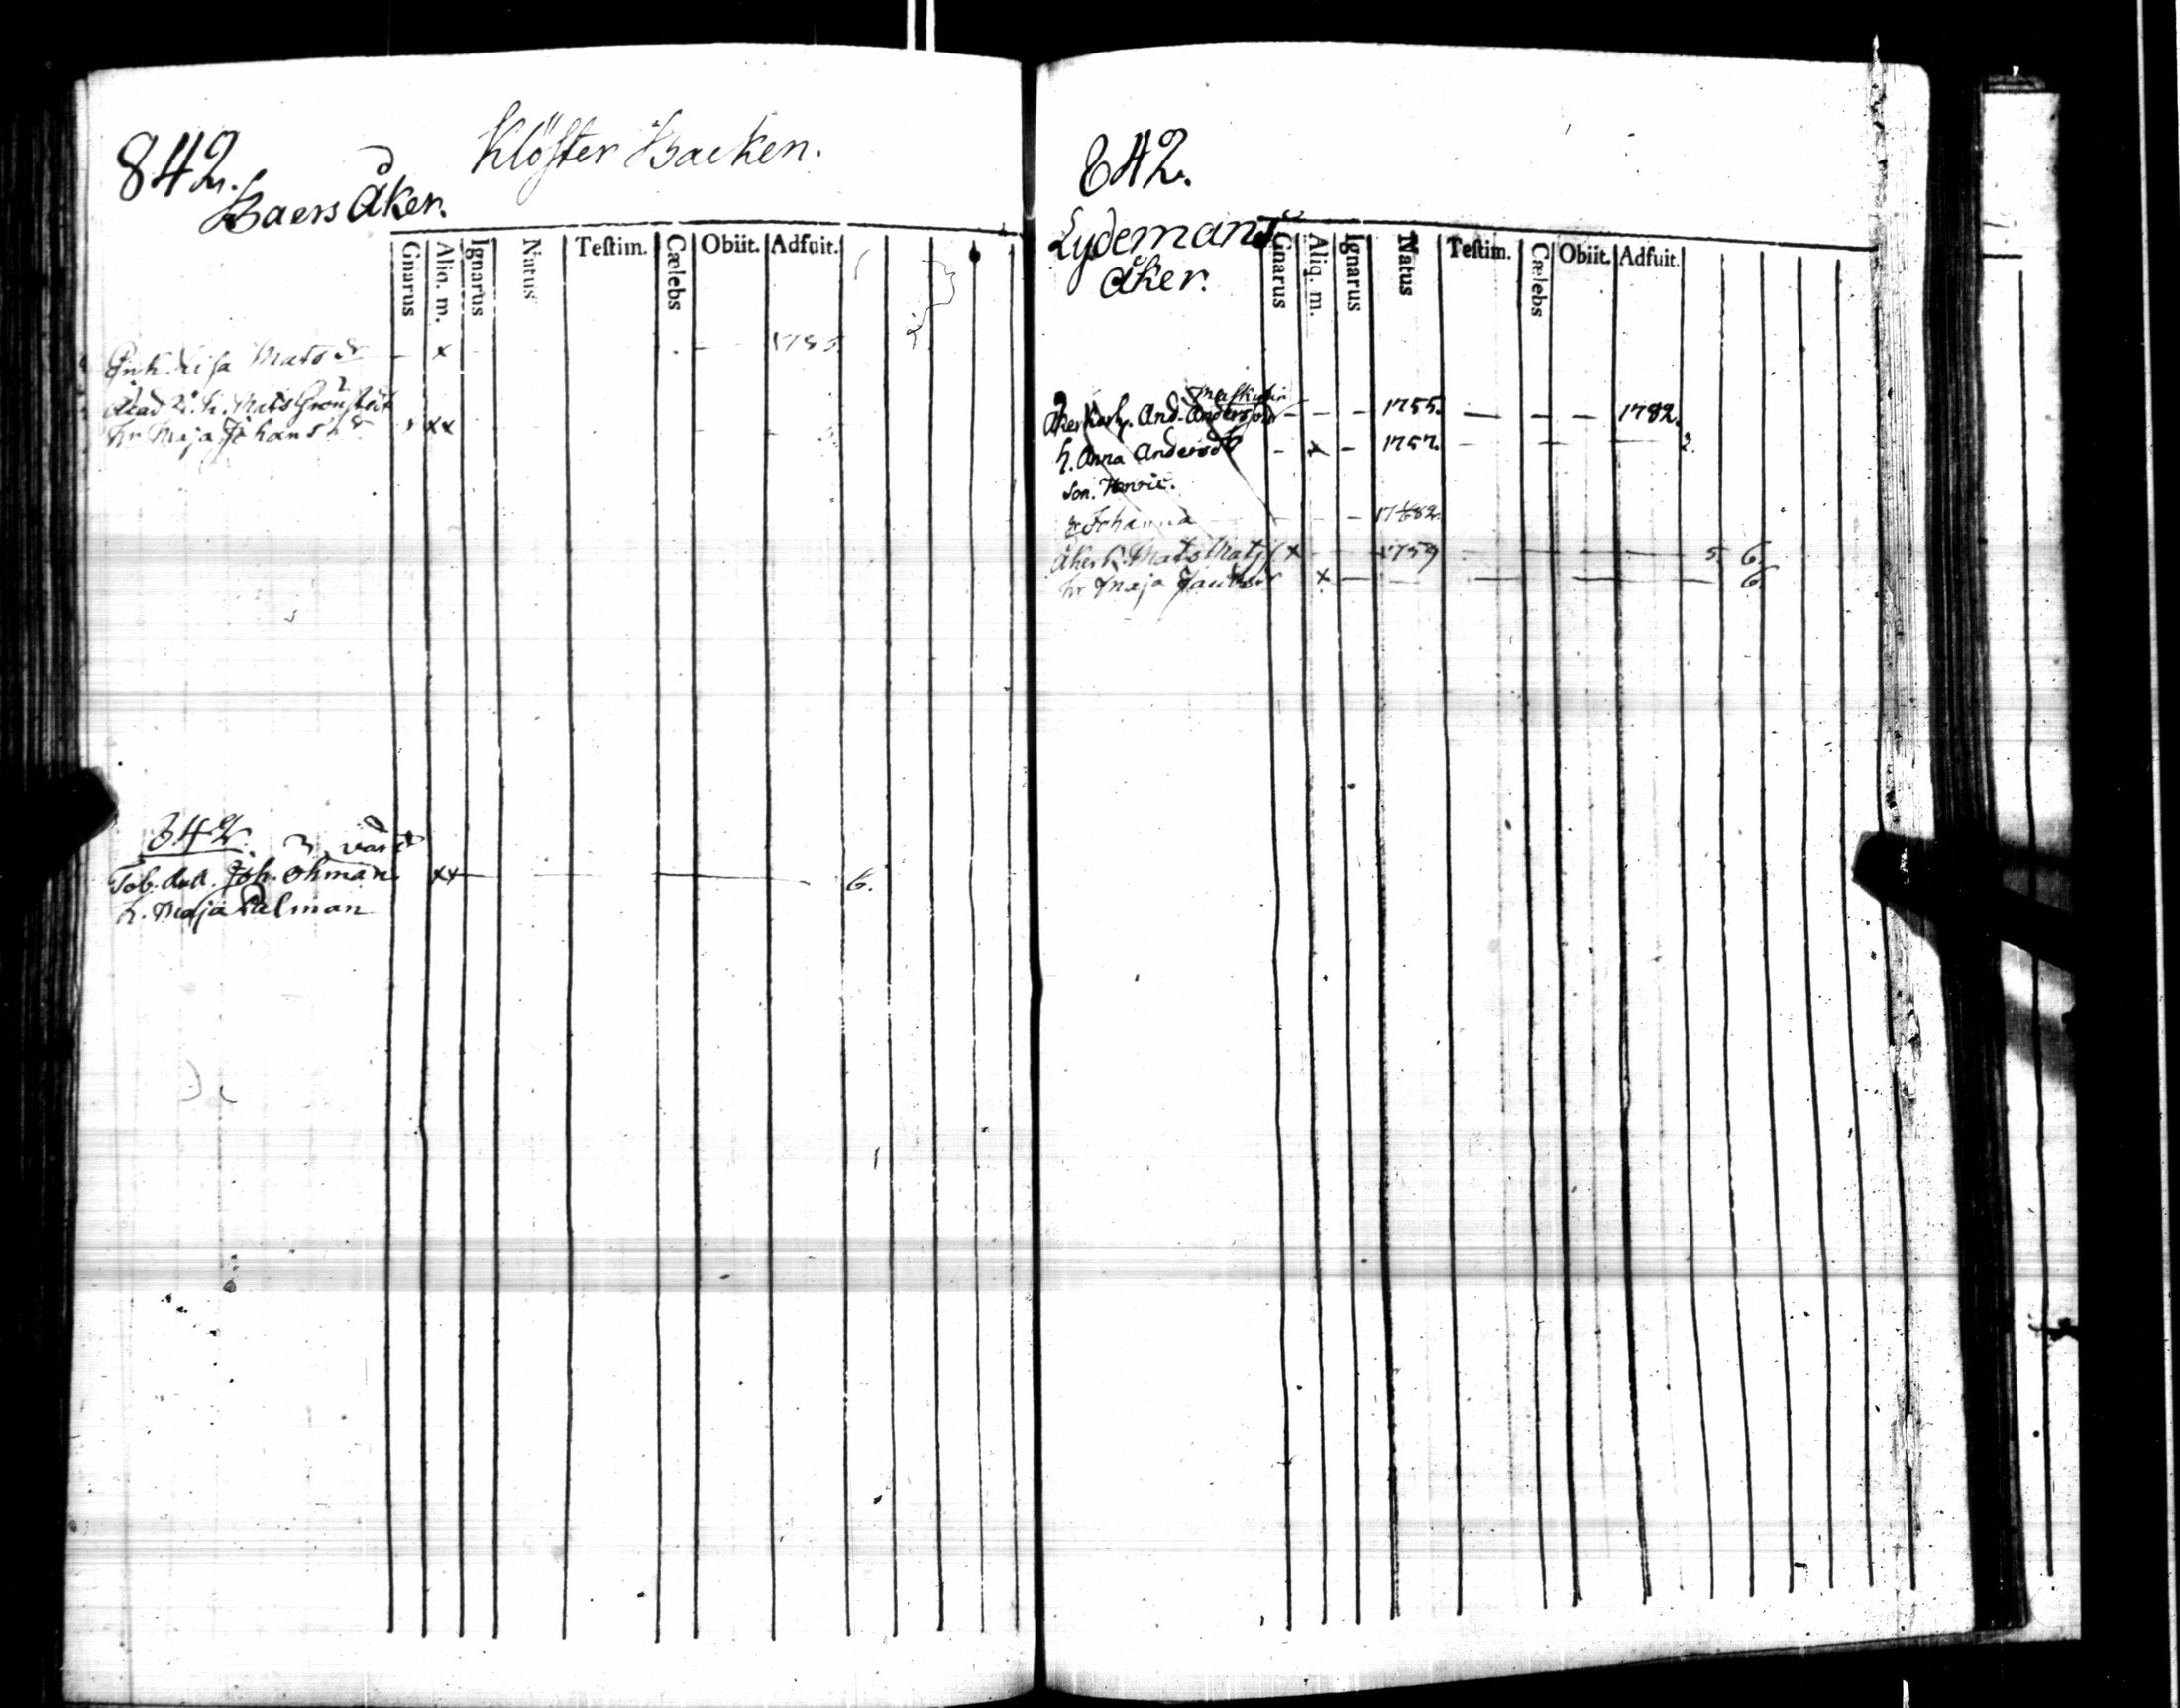 Klöster Backen.
842.
Baers åker.
Gnarus Aliq. m. Ignarus Natus Teſtim. Cælebs Obiit. Adfuit.
Enk. Lisa Mats dr - x
Mats Grönstedt
hr Maja Johans dr xx
842.
Joh. Öhman xx 6.
h. Maja Palman
842.
Lydemans
åker.
Gnarus Aliq. m. Ignarus Natus Teſtim. Cælebs Obiit. Adfuit.
And. Andersson - - - 1755. - - - 1782.
h. Anna Andersdr - x - 1757. - - - 3.
son. Henric.
dr Johanna
Åker k. Mats Matss x 1759 5 6.
hr Maja x 6.